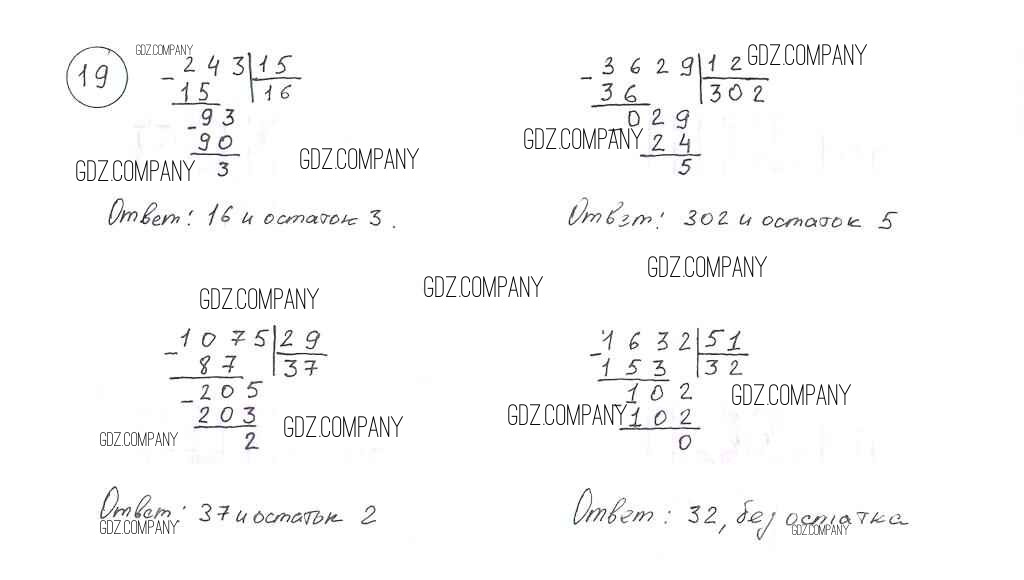 19
GDZ.COMPANY
- 243 | 15
15 | 16
- 93
90
3
GDZ.COMPANY
GDZ.COMPANY
Ответ: 16 и остаток 3.
- 3629 | 12
GDZ.COMPANY
36 | 302
- 029
GDZ.COMPANY
24
5
Ответ: 302 и остаток 5
GDZ.COMPANY
GDZ.COMPANY
GDZ.COMPANY
- 1075 | 29
87 | 37
- 205
203
2
GDZ.COMPANY
GDZ.COMPANY
Ответ: 37 и остаток 2
GDZ.COMPANY
- 1632 | 51
153 | 32
102
GDZ.COMPANY
GDZ.COMPANY
102
0
Ответ: 32, без остатка
GDZ.COMPANY